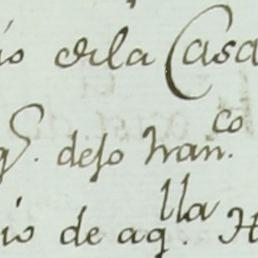 io de la Casa
q.s deso Fran.co
io de aq.lla H